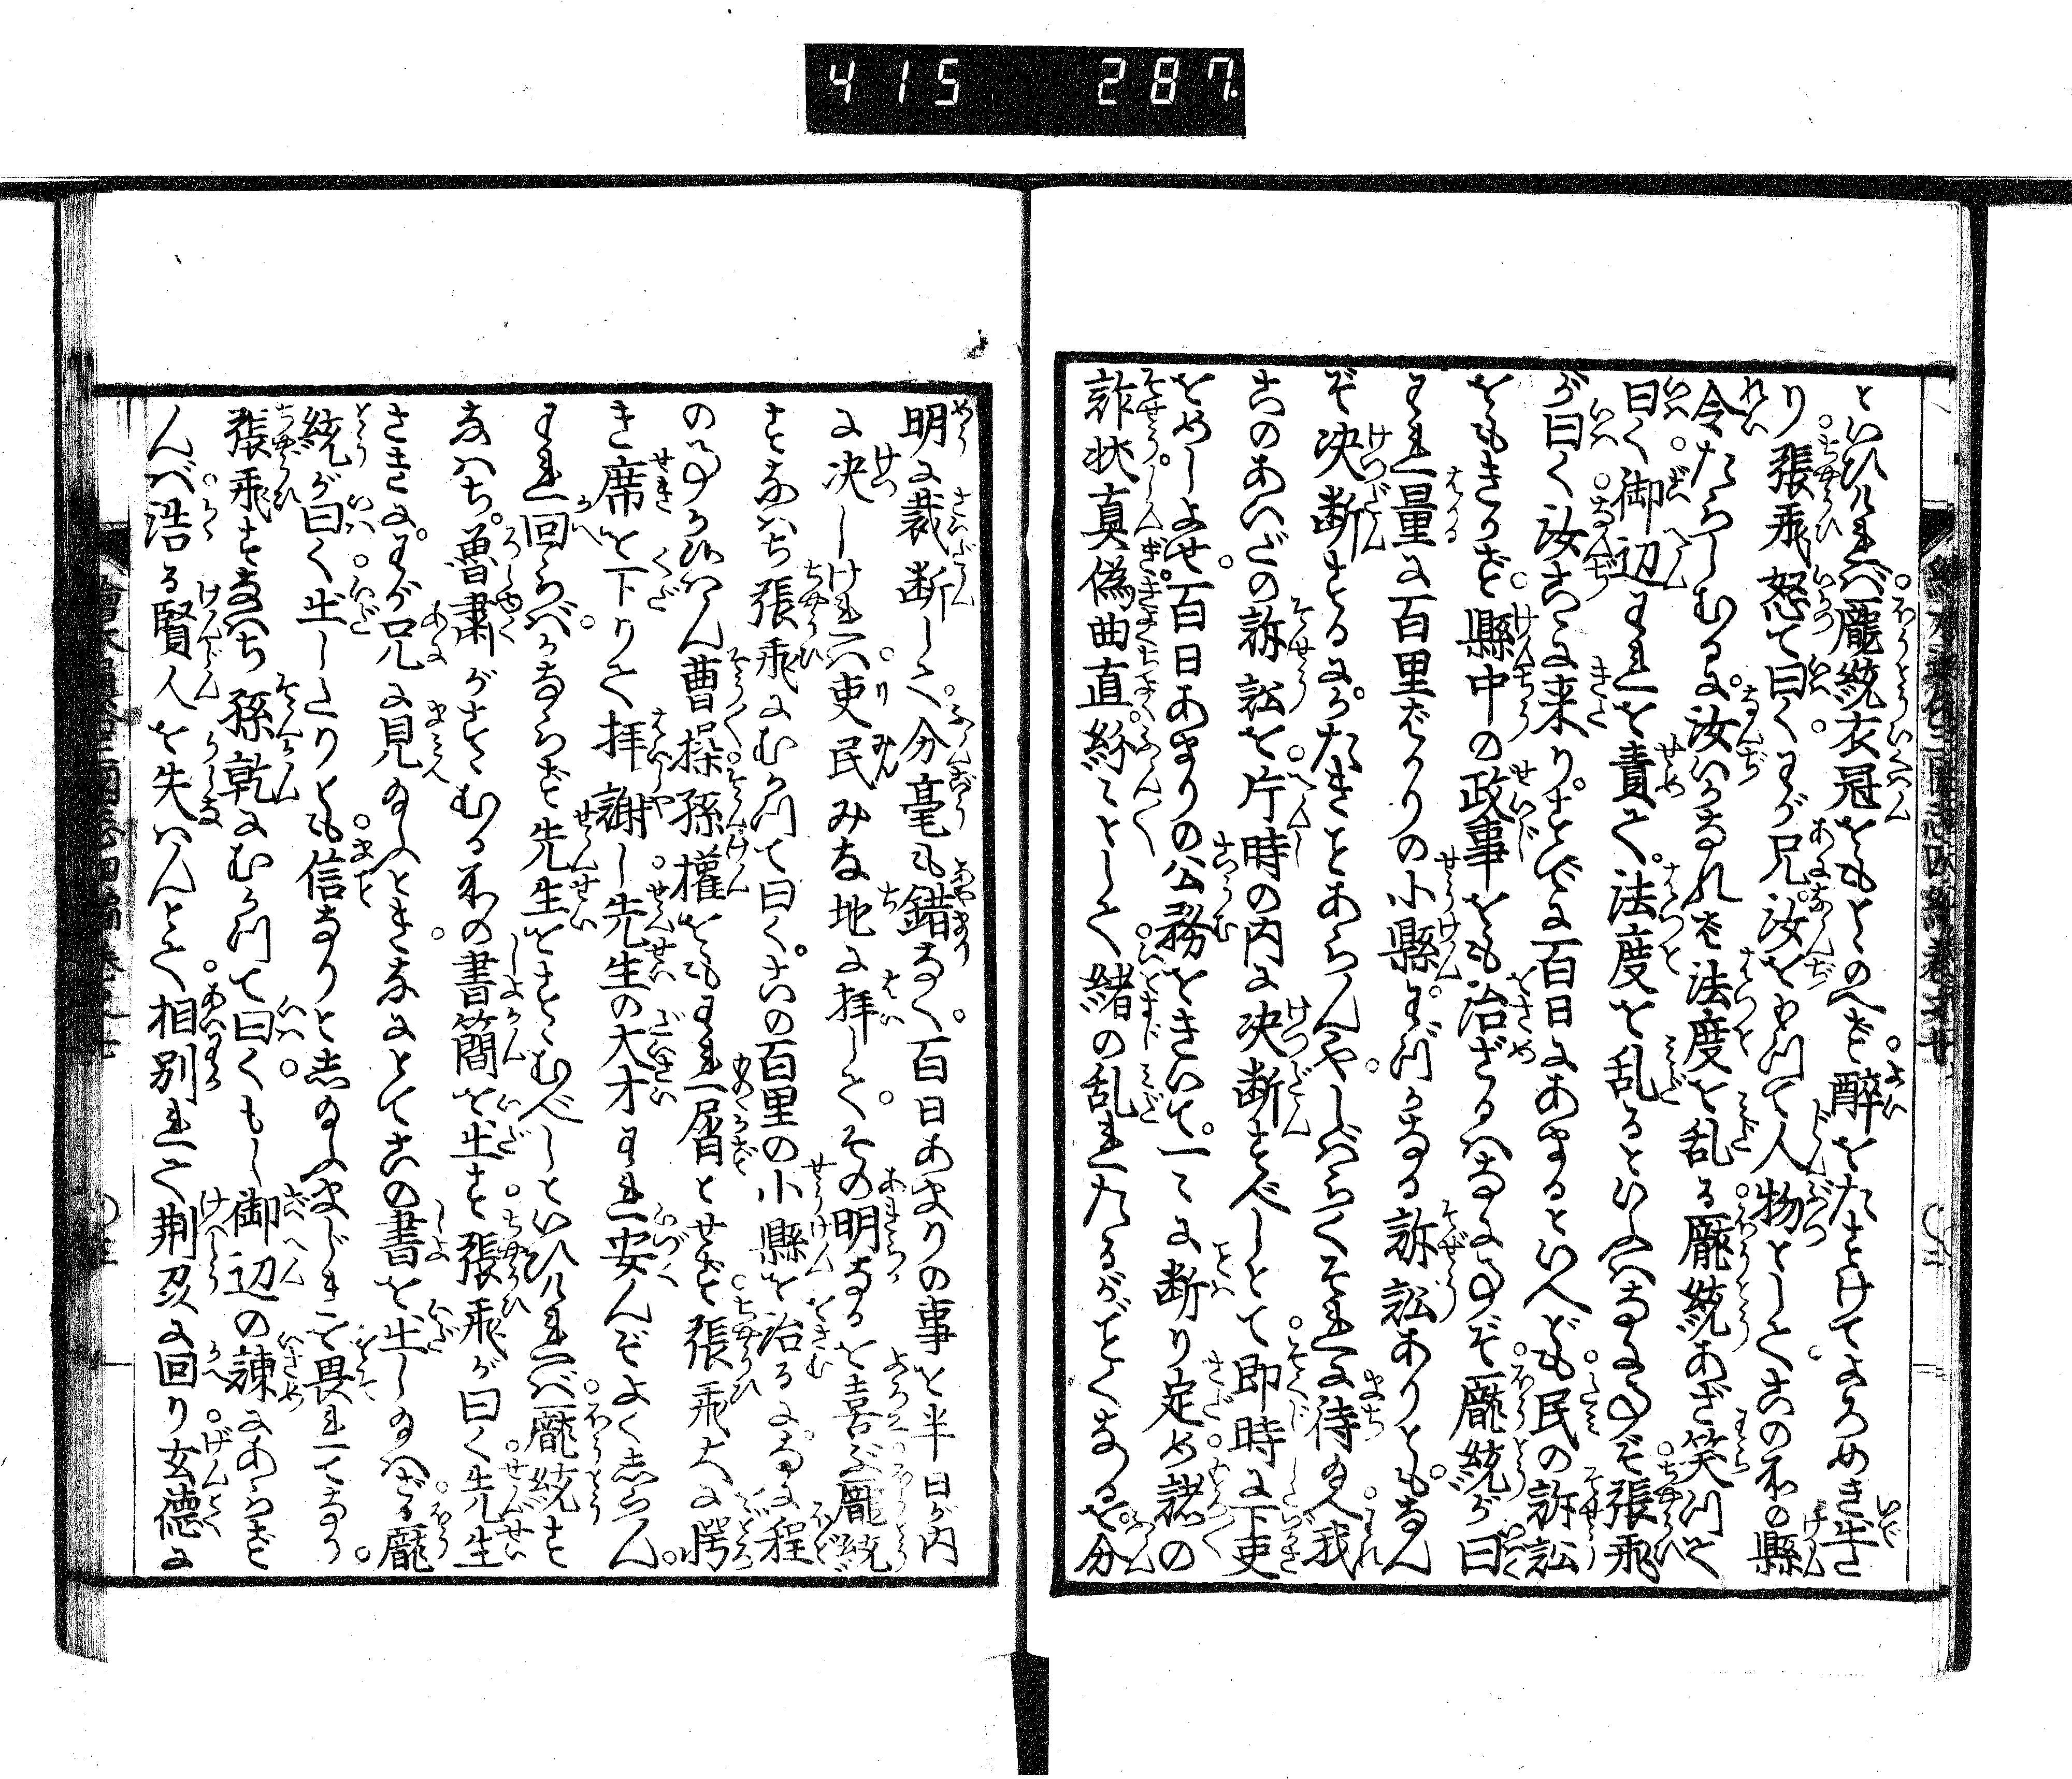 415 287
といひければ龐統衣冠をもとゝのへず醉をたすけてよろめき出さ
り張飛怒て曰くわが兄汝をもつて人物としてこの所の縣
令たらしむるに汝いかなれば法度を乱る龐統あざ笑つて
曰く御辺われを責て法度を乱るといふはなに事ぞ張飛
が曰く汝こゝに来りすでに百日にあまるといへども民の訴訟
をもきかず縣中の政事をも治ざるはなに事ぞ龐統が曰
われ量に百里ばかりの小縣わづかなる訴訟ありともなん
ぞ决断するにかたきとあらんやしばらくそれに待給へ我
このあいだの訴訟を片時の内に决断すべしとて即時に下吏
をめしよせ百日あまりの公務をきいて一〻に断り定め諸の
詐状真偽曲直紛〻として緒の乱れたるがごとくなるを分
明に裁断して分毫も錯なく百日あまりの事を半日が内
に决しければ吏民みな地に拝してその明なるを喜ぶ龐統
すなはち張飛にむかつて曰くこの百里の小縣を治るになに程
の事かあらん曹操孫權をもわれ屑とせず張飛大に愕
き席を下りて拝謝し先生の大才われ安んぞよく志らん
われ回らばかならず先生をすゝむべしといひければ龐統す
なはち魯粛がすゝむる所の書簡を出す張飛が曰く先生
さきにわが兄に見給ふときなにとてこの書を出し給はざる龐
統が曰く出したりとも信なりと志給ふまじきを畏れてなり
張飛すなはち孫乾にむかつて曰くもし御辺の諫にあらず
んば浩る賢人を失はんとて相別れて荆州に回り玄德に